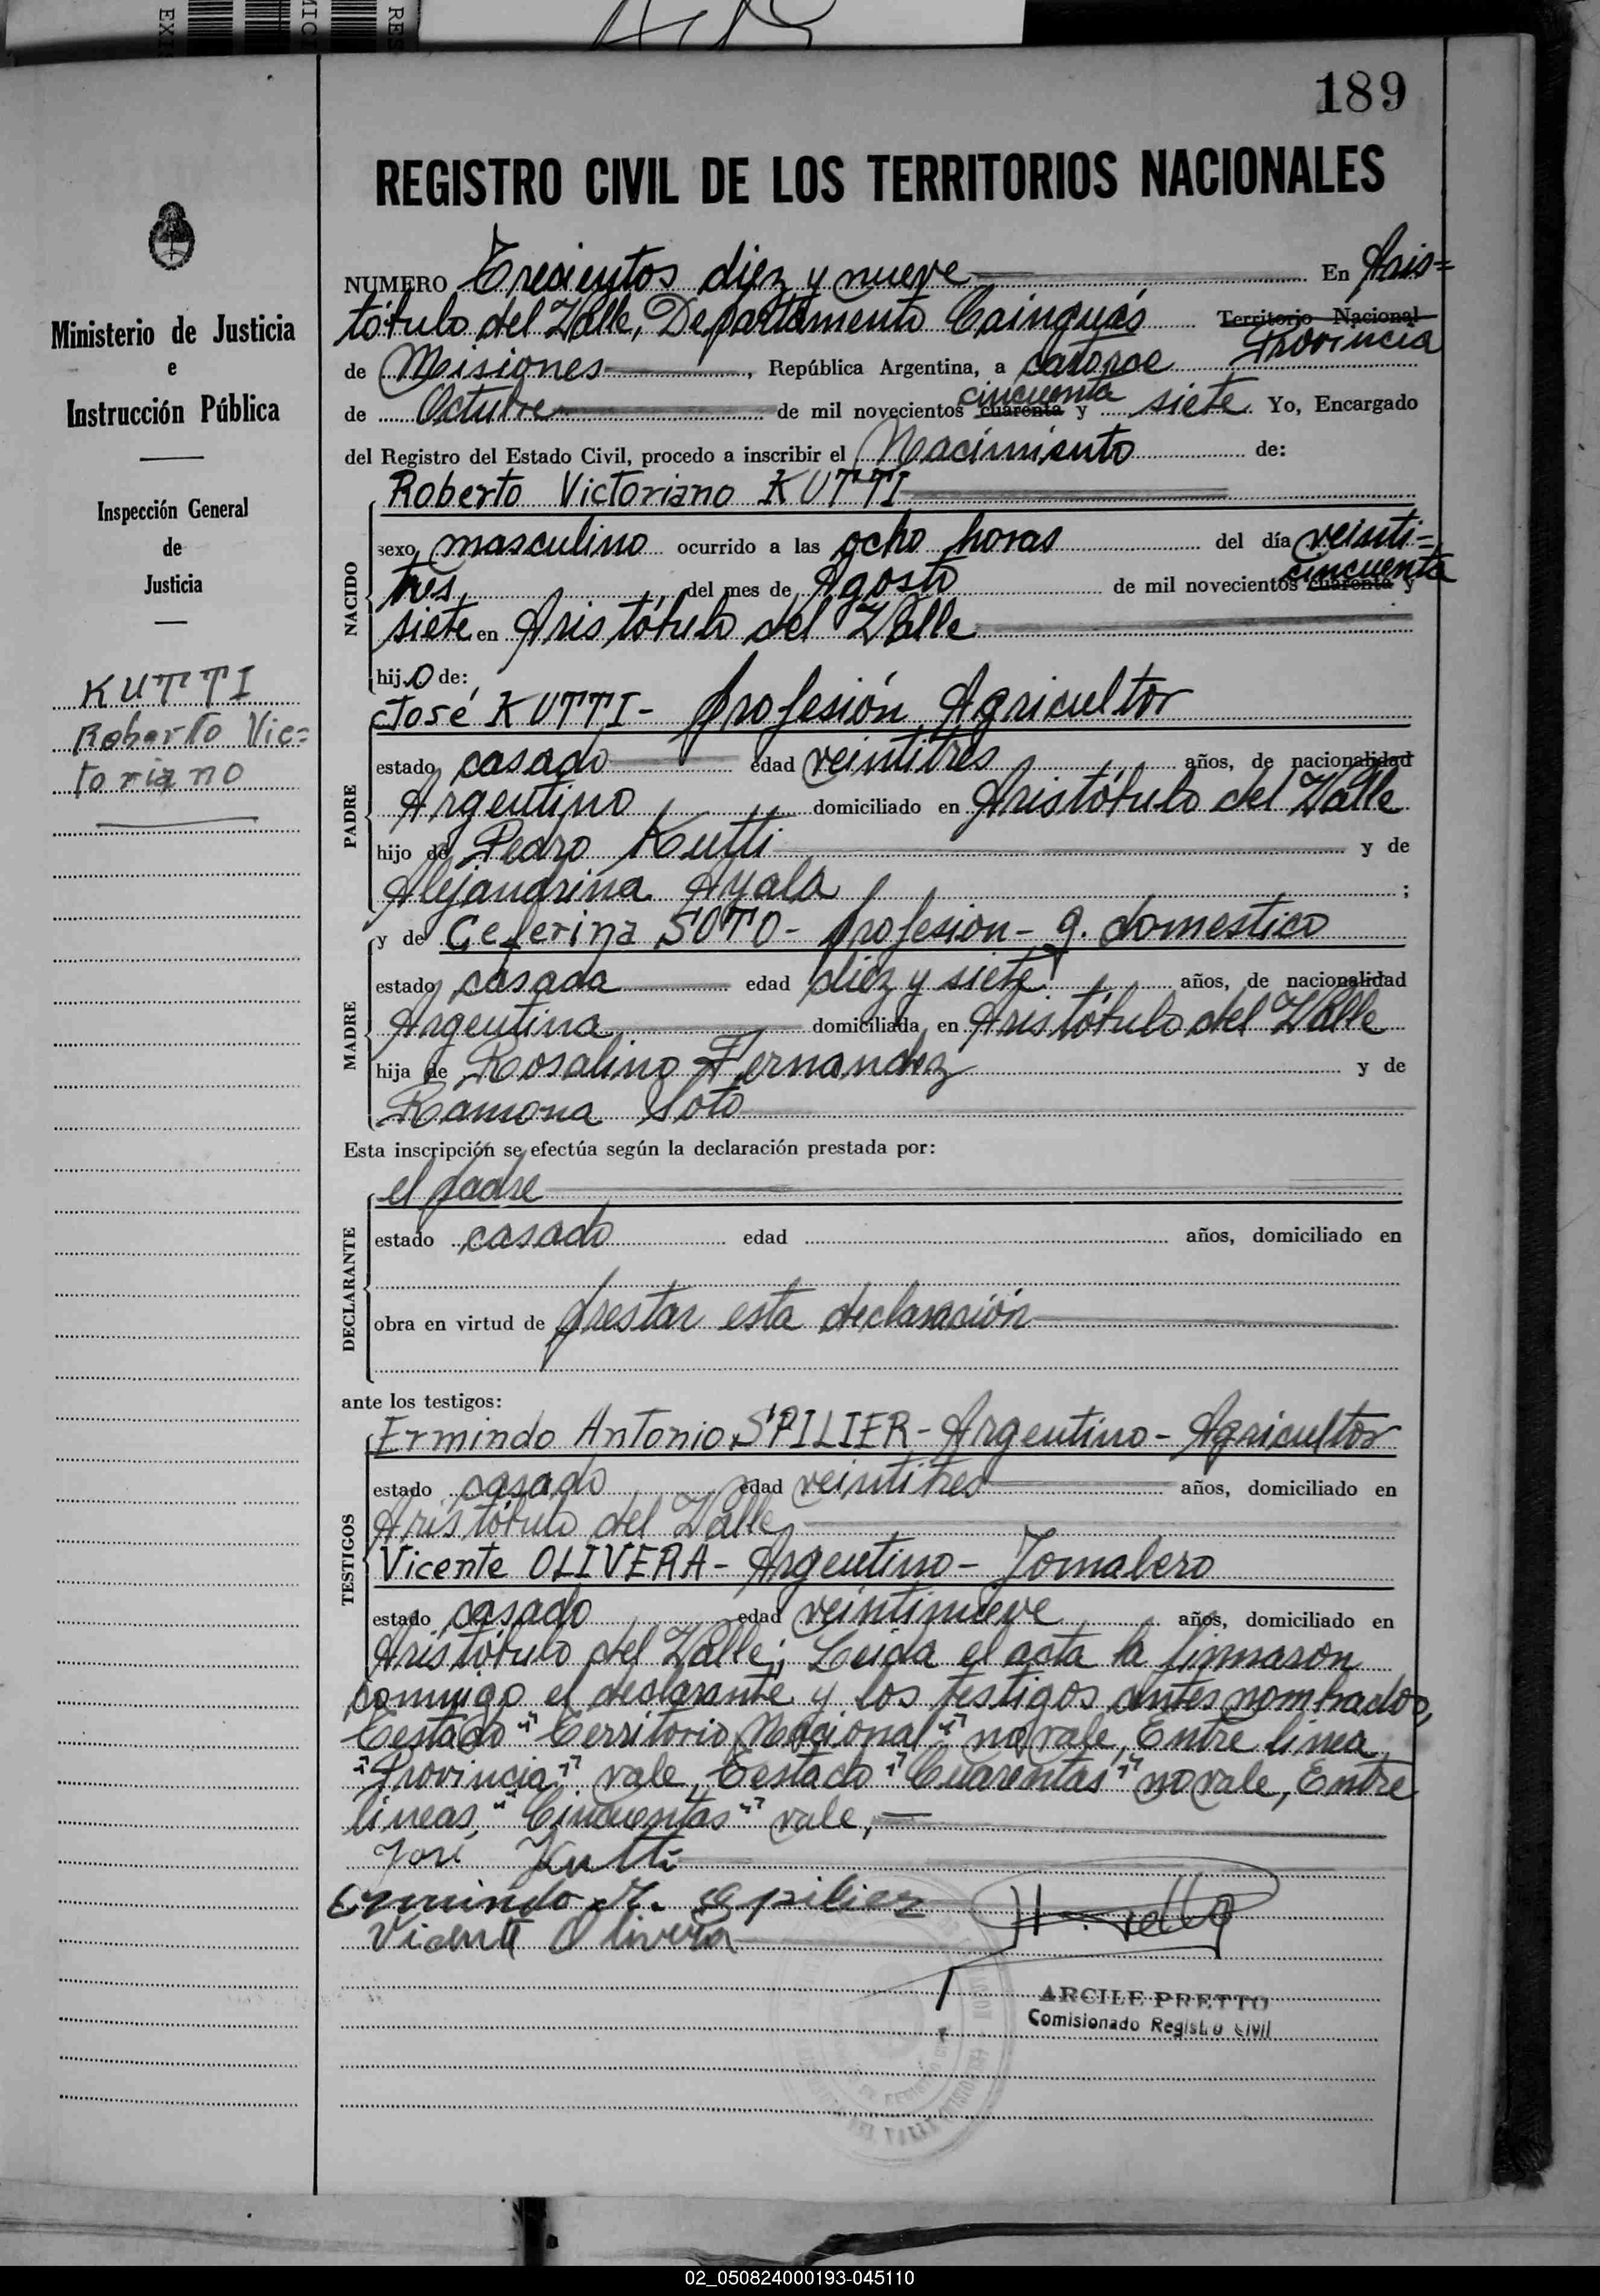 189
REGISTRO CIVIL DE LOS TERRITORIOS NACIONALES
Ministerio de Justicia
e
Instrucción Pública
Inspección General
de
Justicia
KUTTI
Roberto Vic=
toriano
NUMERO Trecientos diez y nueve En Aris=
tóbulo del Valle, Departamento Cainguás Territorio Nacional
Provincia
de Misiones, República Argentina, a catorce
cincuenta
de Octubre de mil novecientos cuarenta y siete Yo, Encargado
del Registro del Estado Civil, procedo a inscribir el Nacimiento de:
Roberto Victoriano KUTTI
NACIDO
sexo masculino ocurrido a las ocho horas del día veinti=
cincuenta
tres del mes de Agosto de mil novecientos cuarenta y
siete en Aristóbulo del Valle
hijo de:
José KUTTI- profesión Agricultor
PADRE
estado casado edad veintitres años, de nacionalidad
Argentino domiciliado en Aristóbulo del Valle
hijo de Pedro Kutti y de
Alejandrina Ayala ;
y de Ceferina SOTO- profesion- q. domestico
MADRE
estado casada edad diez y siete años, de nacionalidad
Argentina domiciliada en Aristóbulo del Valle
hija de Rosalino Fernandez y de
Ramona Soto
Esta inscripción se efectúa según la declaración prestada por:
el padre
DECLARANTE
estado casado edad años, domiciliado en
obra en virtud de prestar esta declaración
ante los testigos:
Ermindo Antonio SPILIER- Argentino- Agricultor
TESTIGOS
estado casado edad veintitres años, domiciliado en
Aristóbulo del Valle
Vicente OLIVERA- Argentino- Jornalero
estado casado edad veintinueve años, domiciliado en
Aristóbulo del Valle; Leida el acta la firmaron
conmigo el declarante y los testigos antes nombrados,
Testado "Territorio Nacional" no vale, Entre linea
"Provincia" vale, Testado "Cuarentas" no vale, Entre
lineas "Cincuentas" vale,
José Kutti
Ermindo A. Spilier
Vicente Olivera
ARCILE PRETTO
Comisionado Registro Civil
02_050824000193-045110